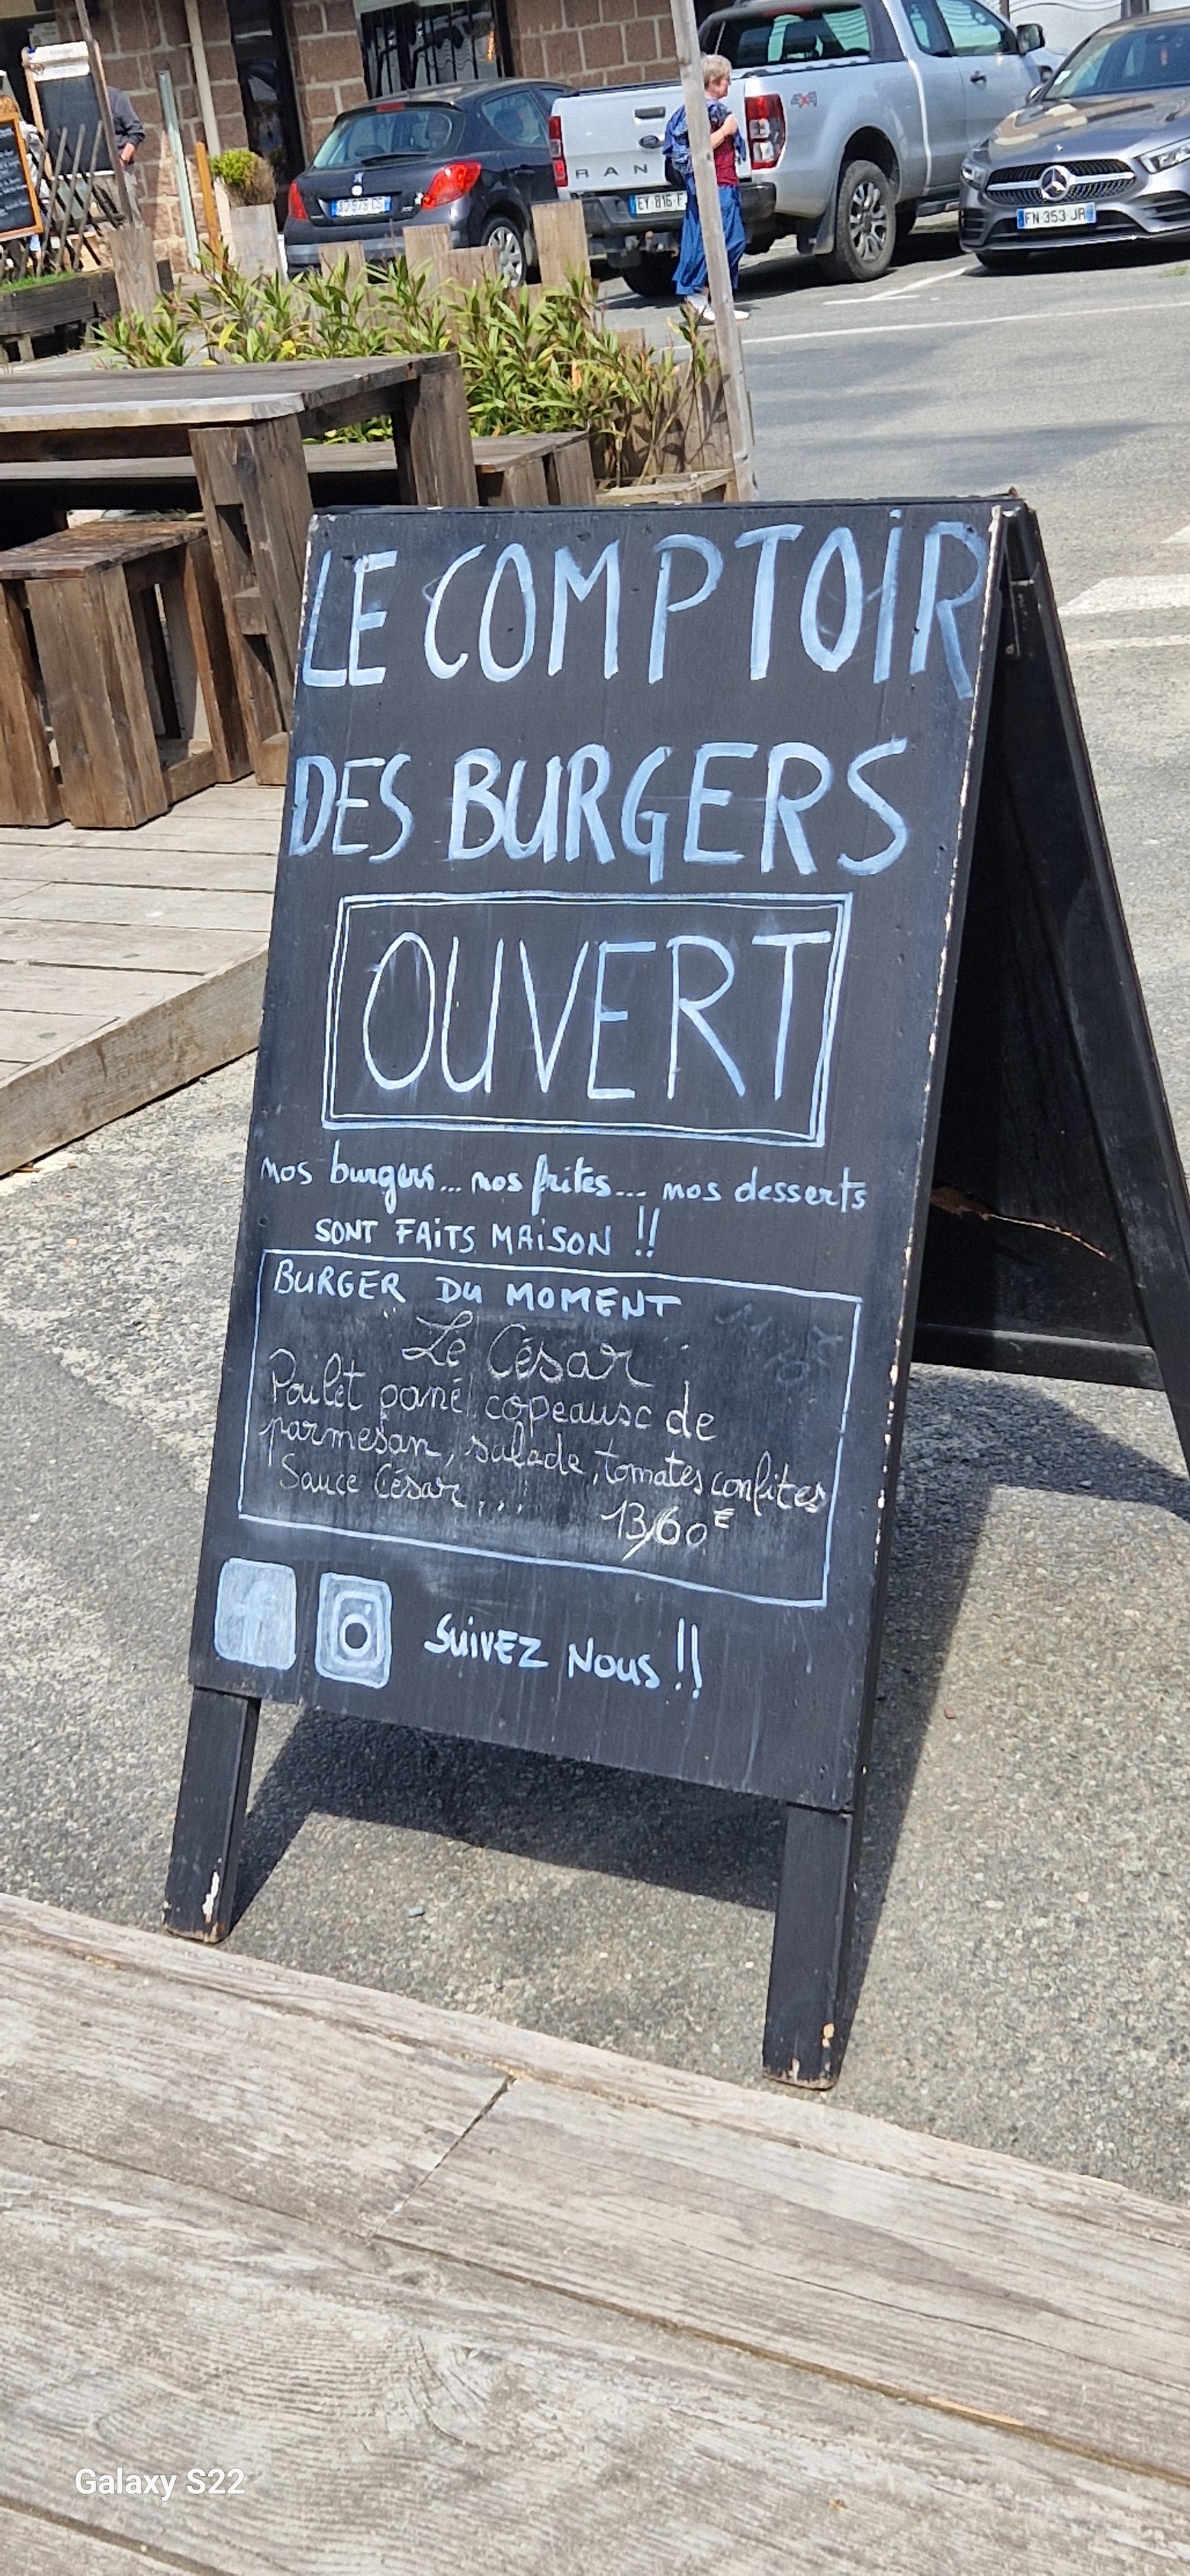 RAN
4x4
EY-816-F
FN-353-JR
LE COMPTOIR
DES BURGERS
OUVERT
nos burgers... nos frites... nos desserts
SONT FAITS MAISON !!
BURGER DU MOMENT
"Le César"
Poulet pané, copeaux de
parmesan, salade, tomates confites
Sauce César...
13,60€
f
SUIVEZ NOUS !!
Galaxy S22